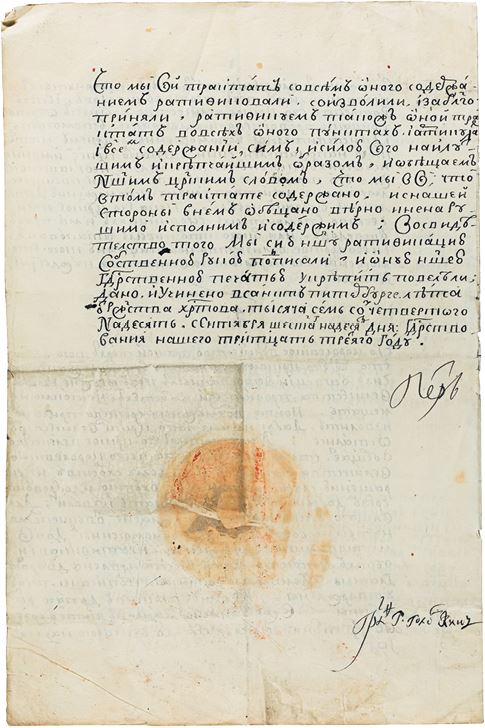 Что мы Сей трактатъ совсѣмъ оного содержа-
ниемъ ратификовали, соизволили, изаблаго
приняли, ратификуемъ тако и оной тра
ктатъ во всѣхъ оного пунктахъ,
i всемъ содержании, симъ, исилою Его наилу
шимъ икрепчайшимъ образомъ, иобещаемъ
Ншимъ црскимъ словомъ, что мы все, что
втомъ трактате содержано, иснашей
стороны внемъ обѣщано вѣрно иненару
шимо исполнимъ исодержимъ; Восвидѣ
телство того, Мы сию ншу ратификацию
Собственною рукою подписали, и оную ншею
Гдрственною печатью укрепить повелѣли,
дано, иучинено всанктъпитербурге, лѣта
ѿ рождства хртова, тысяча семь со четвертого
Надесять, Сентября шестагѡ надесять дня: Гдрство
вания нашего тритцать третяго Году.
Петръ